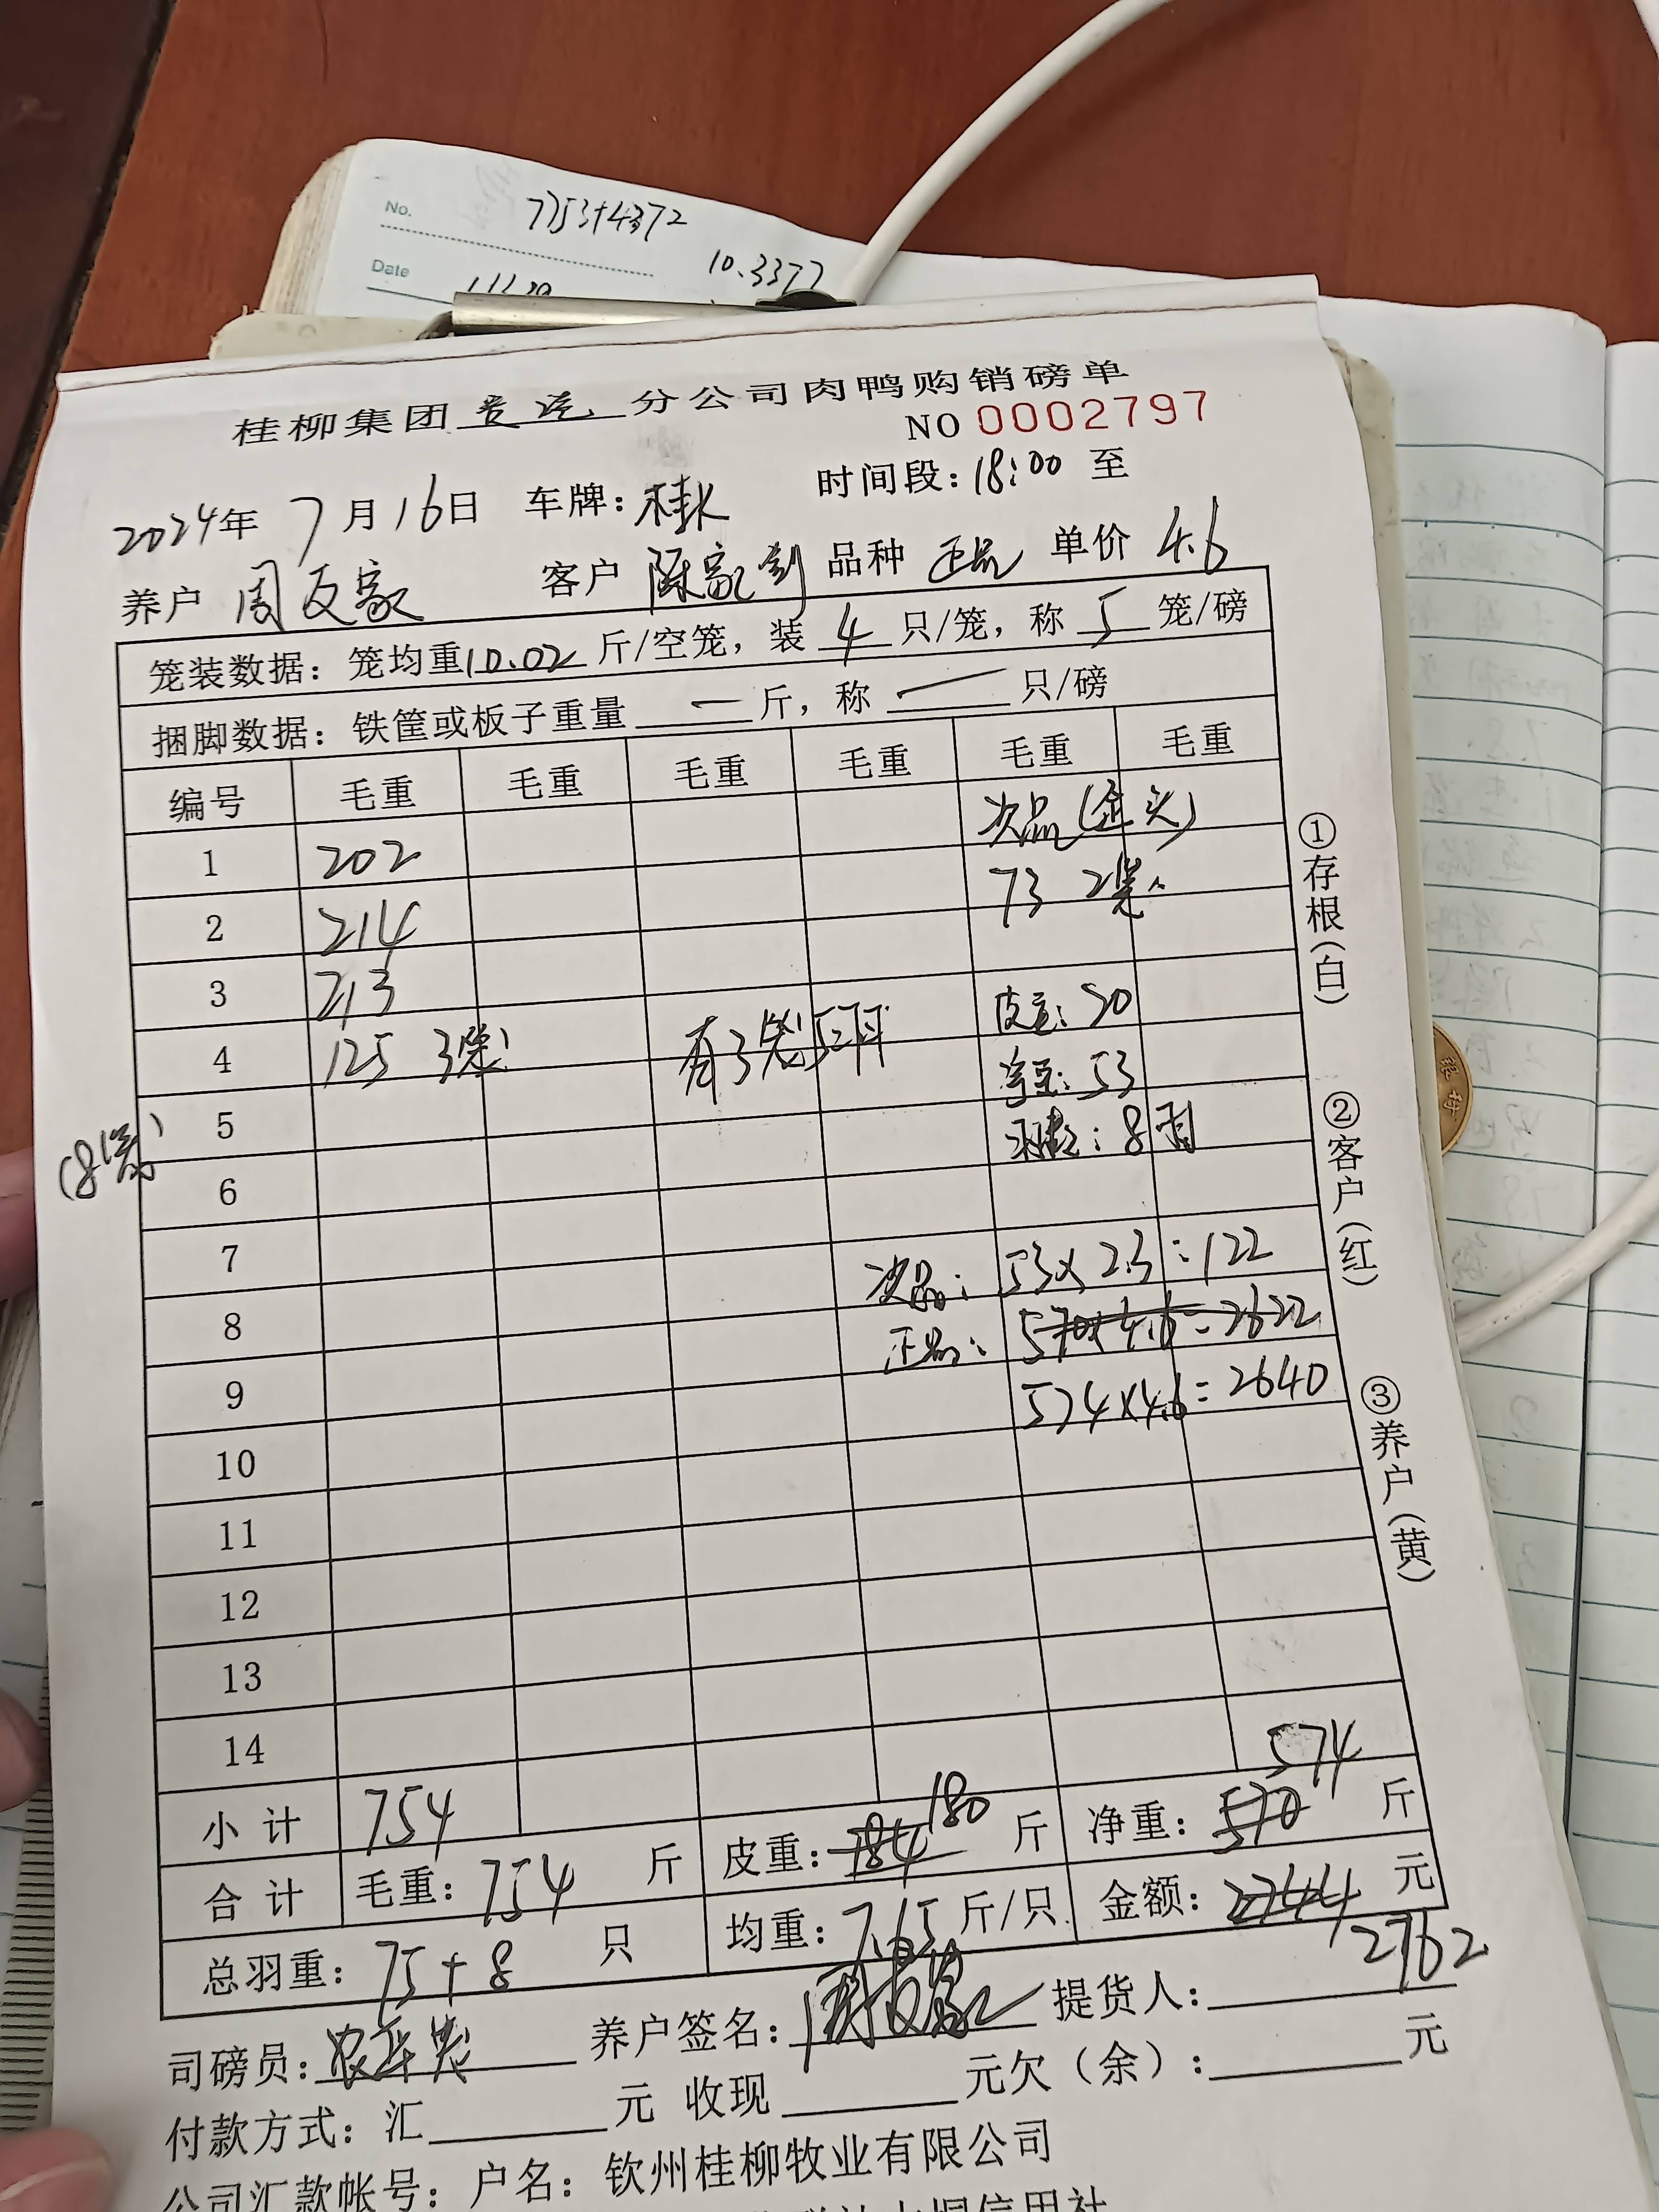 No. 7753+4372
Date
10.3377
桂柳集团 分公司肉鸭购销磅单
NO 0002797
2024年 7月16日 车牌：桂K 时间段：18:00 至
养户 周反家 客户 陈家剑 品种 正品 单价 4.6
笼装数据：笼均重10.02斤/空笼，装 4 只/笼，称 5 笼/磅
捆脚数据：铁筐或板子重量 — 斤，称 — 只/磅
编号 毛重 毛重 毛重 毛重 毛重 毛重
次品
1 202 73 2笼
2 214
3 213 皮重：20
4 125 3笼 有3笼5只 净重：53
5 羽数：8羽
6
7 次品：53×2.3=122
8 正品：570×4.6=2622
9 574×4.6=2640
10
11
12
13
14
小计 754
574
合计 毛重：754 斤 皮重：184 180 斤 净重：570 斤
总羽重：75+8 只 均重：7.65斤/只 金额：2744 元
2762
司磅员： 养户签名： 提货人：
付款方式：汇 元 收现 元欠（余）： 元
公司汇款帐号：户名：钦州桂柳牧业有限公司
信用社
①存根（白）
②客户（红）
③养户（黄）